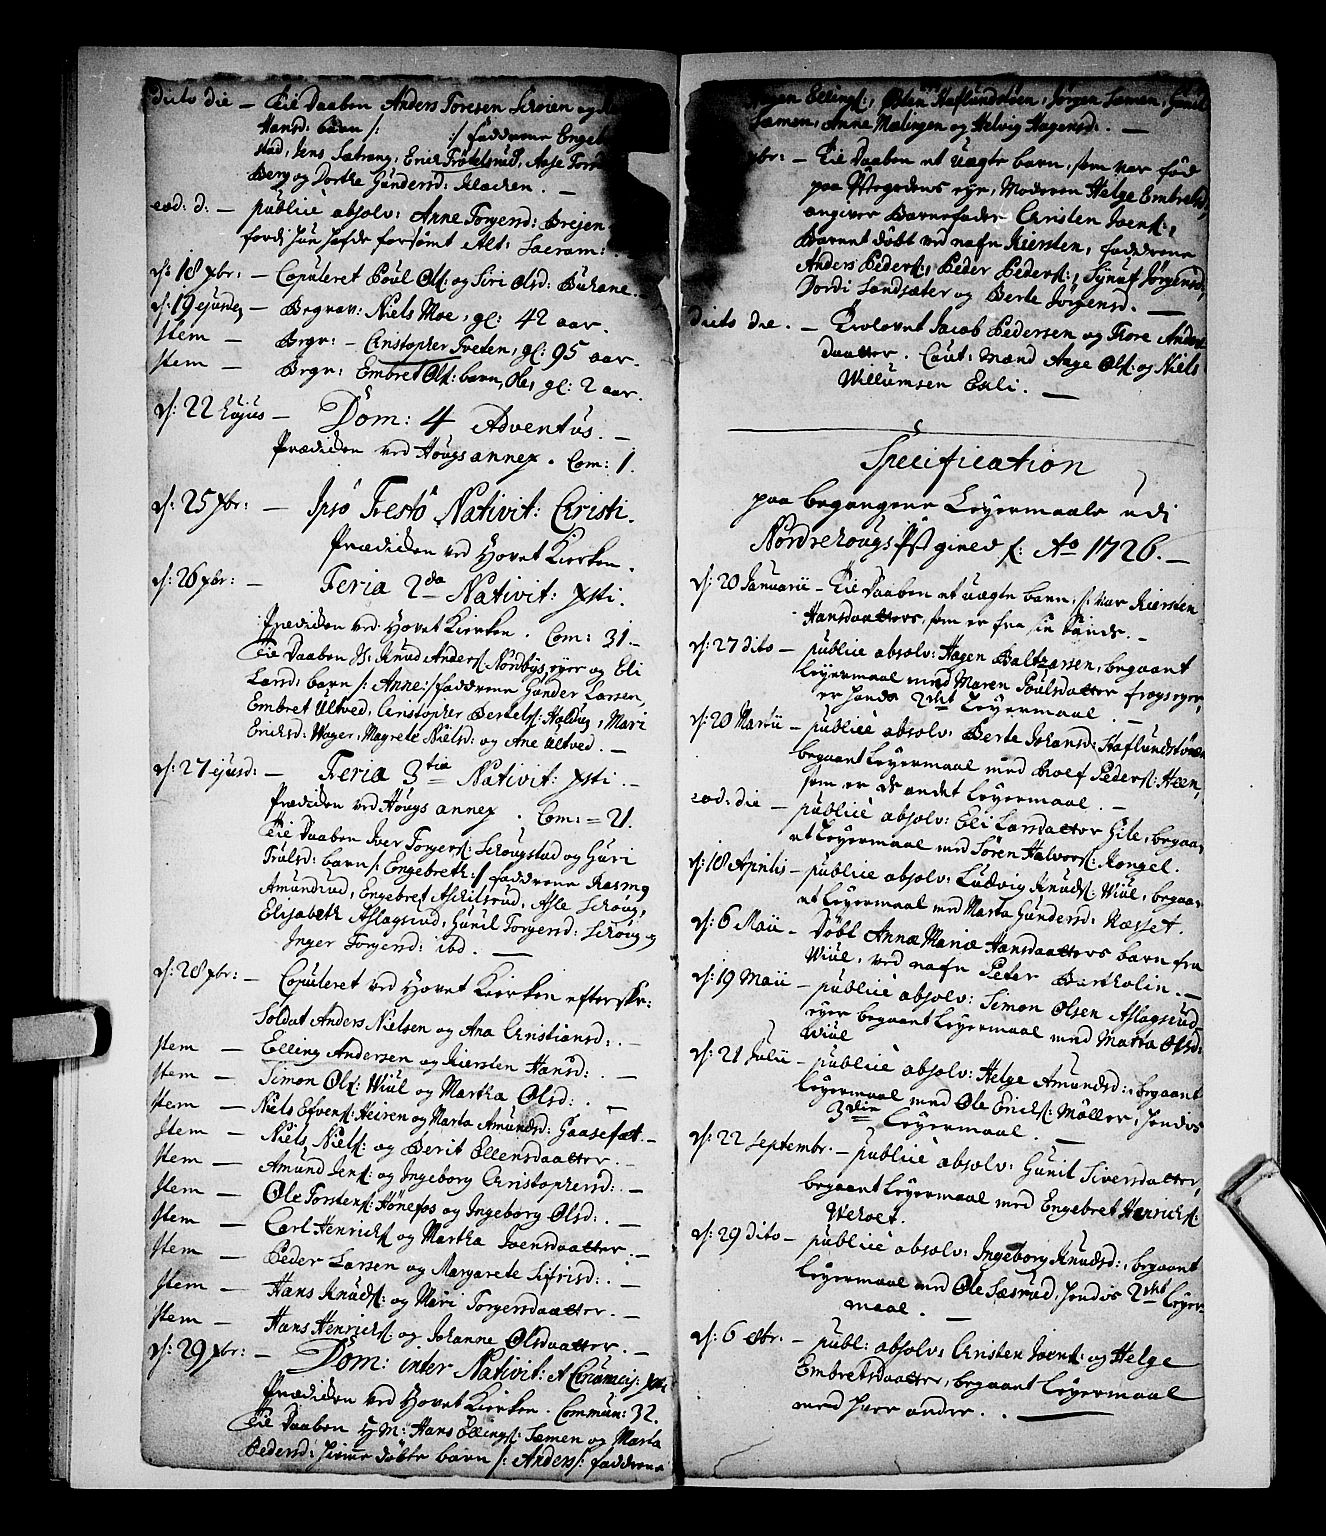 dicto die – Til Daaben Anders Toresen Schøien og
Hansd: barn /: :/ fadderne Engeb
stad, Jens Sætrang, Erich Frøtelsrud, Aase Torr
Berg og Dorthe Gundersd: Klecken. –
eod: d: – publicè absolv: Anne Torgersd: Breien
fordi hun hafde forsømt Alt: Sacram:
d: 18 xbr: – Copuleret Poul Ols: og Siri Olsd: Buhane.
d: 19 ejusd, – Begrav: Niels Moe, gl: 42 aar.
Item – Begr: – Cristopher Tveten, gl: 95 aar.
Item – Begr: Embret Ols: barn, Ole, gl: 2 aar.
d: 22 hujus – Dom: 4 Adventus. –
Prædiken ved Hougs annex. Com: 1.
d: 25 xbr: – Ipso Festo Nativit: Christi.
Prædiken ved Hovet Kierken.
d: 26 xbr: – Feria 2da Nativit: xsti.
Prædiken ved Hovet Kierken. Com: 31.–
Til Daaben Knud Anders: Nordbys eyer og Eli
Larsd: barn /: Anne :/ fadderne Gunder Larsen,
Embret Ultved, Cristopher Berthels: Haldug, Mari
Ericksd: Wager, Magrete Nielsd: og Ane Ultved. –
d: 27 ejusd: – Feria 3tia Nativit: xsti. –
Prædiken ved Hougs annex. Com: = 21.
Til Daaben Iver Torgers: Schougstad og Guri
Trulsd: barn /: Engebreth :/ fadderne Rasmg
Amundrud, Engebret Askilsrud, Asle Schoug,
Elisabeth Aslagsrud, Gunil Torgersd: Schoug og
Inger Torgersd: ibd. –
d: 28 xbr: – Copuleret ved Hovet Kierken efterskr:
Soldat Anders Nielsen og Ana Cristiansd: –
Item – Elling Andersen og Kiersten Hansd: –
Item – Simon Ols: Wiul og Martha Olsd: –
Item – Niels Efvens: Heiren og Marta Amundsd: Gaasefæt. –
Item – Niels Niels: og Berit Ellensdaatter. –
Item – Amund Jens: og Ingeborg Cristophersd: –
Item – Ole Torstens: Hønefos og Ingeborg Olsd: –
Item – Carl Henricks: og Martha Joensdaatter. –
Item – Peder Larsen og Margarete Sifrisd: –
Item – Hans Knuds: og Mari Torgersdaatter. –
Item – Hans Henricks: og Johanne Olsdaatter. –
d: 29 xbr: – Dom: inter Nativit: et Circumcis: xsti
Prædiken ved Hovet Kierken. Commun: 32.
Til Daaben Hans Ellings: Semen og Marta
Pedersd: hiemme døbte barn /: Anders :/ fadderne
Hagen Ellings:, Østen Haflundstøen, Jørgen Semen, Gunil
Semen, Anne Mælingen og Helvig Hagensd: –
br: – Til Daaben et Uægte barn, som var fød
paa Østegedens eyr, Moderen Helge Embretsd,
angiver Barnefader Cristen Joens:,
Barnet døbt ved nafn Kiersten, fadderne
Anders Peders:, Peder Peders:, Synuf Jørgensd,
Dordi Sandsæter og Berte Jørgensd. –
dicto die. – Trolovet Jacob Pedersen og Tore Anders
daatter. Caut: Mænd Ange Ols: og Niels
Willumsen Exli. –
Specification
paa begangene Leyermaale udi
Nordrehougs Præstegield f: Ao 1726. –
d: 20 Januarii – Til Daaben et Uægte barn, s: var Kiersten
Hansdaatters, som er fra sin Sands. –
d: 27 dito – publicè absolv: Hagen Baltzarsen, begaaet
Leyermaal med Maren Poulsdatter frogs eyer,
er hendes 2det Leyermaal. –
d: 20 Martii – publicè absolv: Berte Johansd: Haflundstøen
begaaet Leyermaal med Roef Peders: Heen,
som er de andet Leyermaal. –
eod: die – publicè absolv: Eli Larsdatter Gile, begaa-
et Leyermaal med Søren Halvors: Rongel.
d: 18 Aprilis – publicè absolv: Ludvig Knuds: Wiul, begaa-
et Leyermaal med Marta Gundersd: Næsset.
d: 6 Maii – Døbt Anne Mariæ Hansdaatters barn fra
Wiul, ved nafn Peter Bartholin. –
d: 19 Maii – publicè absolv: Simon Olsen Aslagsrud-
eyer begaaet Leyermaal med Matra Olsd:
Wiul
d: 21 Julii – publicè absolv: Helge Amundsd:, begaaet
Leyermaal med Ole Ericks: Møller, hendis
3die Leyermaal. –
d: 22 Septembr. – publicè absolv: Gunil Siversdatter,
begaaet Leyermaal med Engebret Henricks:
Wekset.
d: 29 dito – publicè absolv: Ingeborg Knudsd:, begaaet
Leyermaal med Ole Sæsrud, hendis 2det Leyer-
maal. –
d: 6 8br. – publ: absolv: Cristen Joens: og Helge
Embretsdaatter, begaaet Leyermaal
med hver andre. –